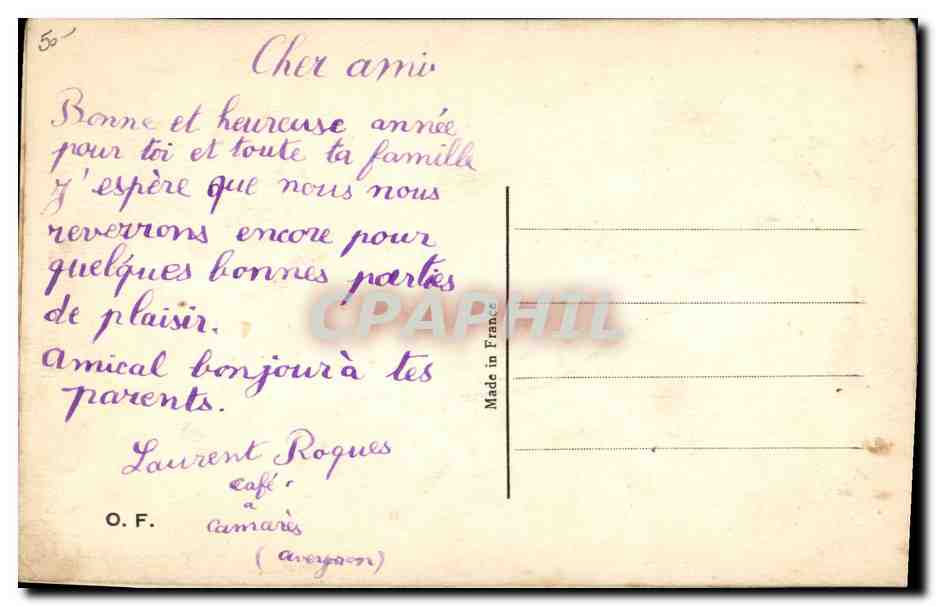 50-
Cher ami
Bonne et heureuse année
pour toi et toute ta famille
J'espère que nous nous
reverrons encore pour
quelques bonnes parties
de plaisir.
Amical bonjour à tes
parents.
Laurent Roques
café
à
Camarès
(Aveyron)
O. F.
Made in France
CPAPHIL